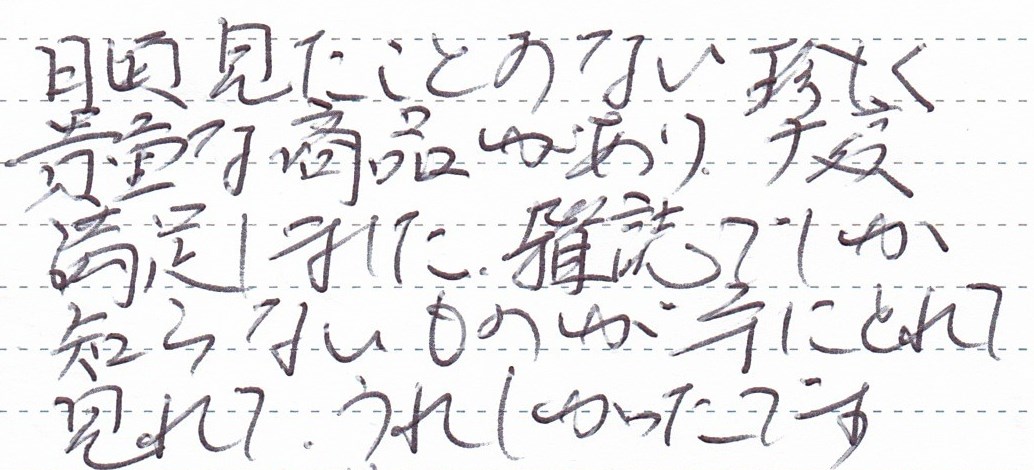 日頃見たことのない珍しく
貴重な商品があり、大変
満足しました。雑誌でしか
知らないものが手にとれて
見れて、うれしかったです